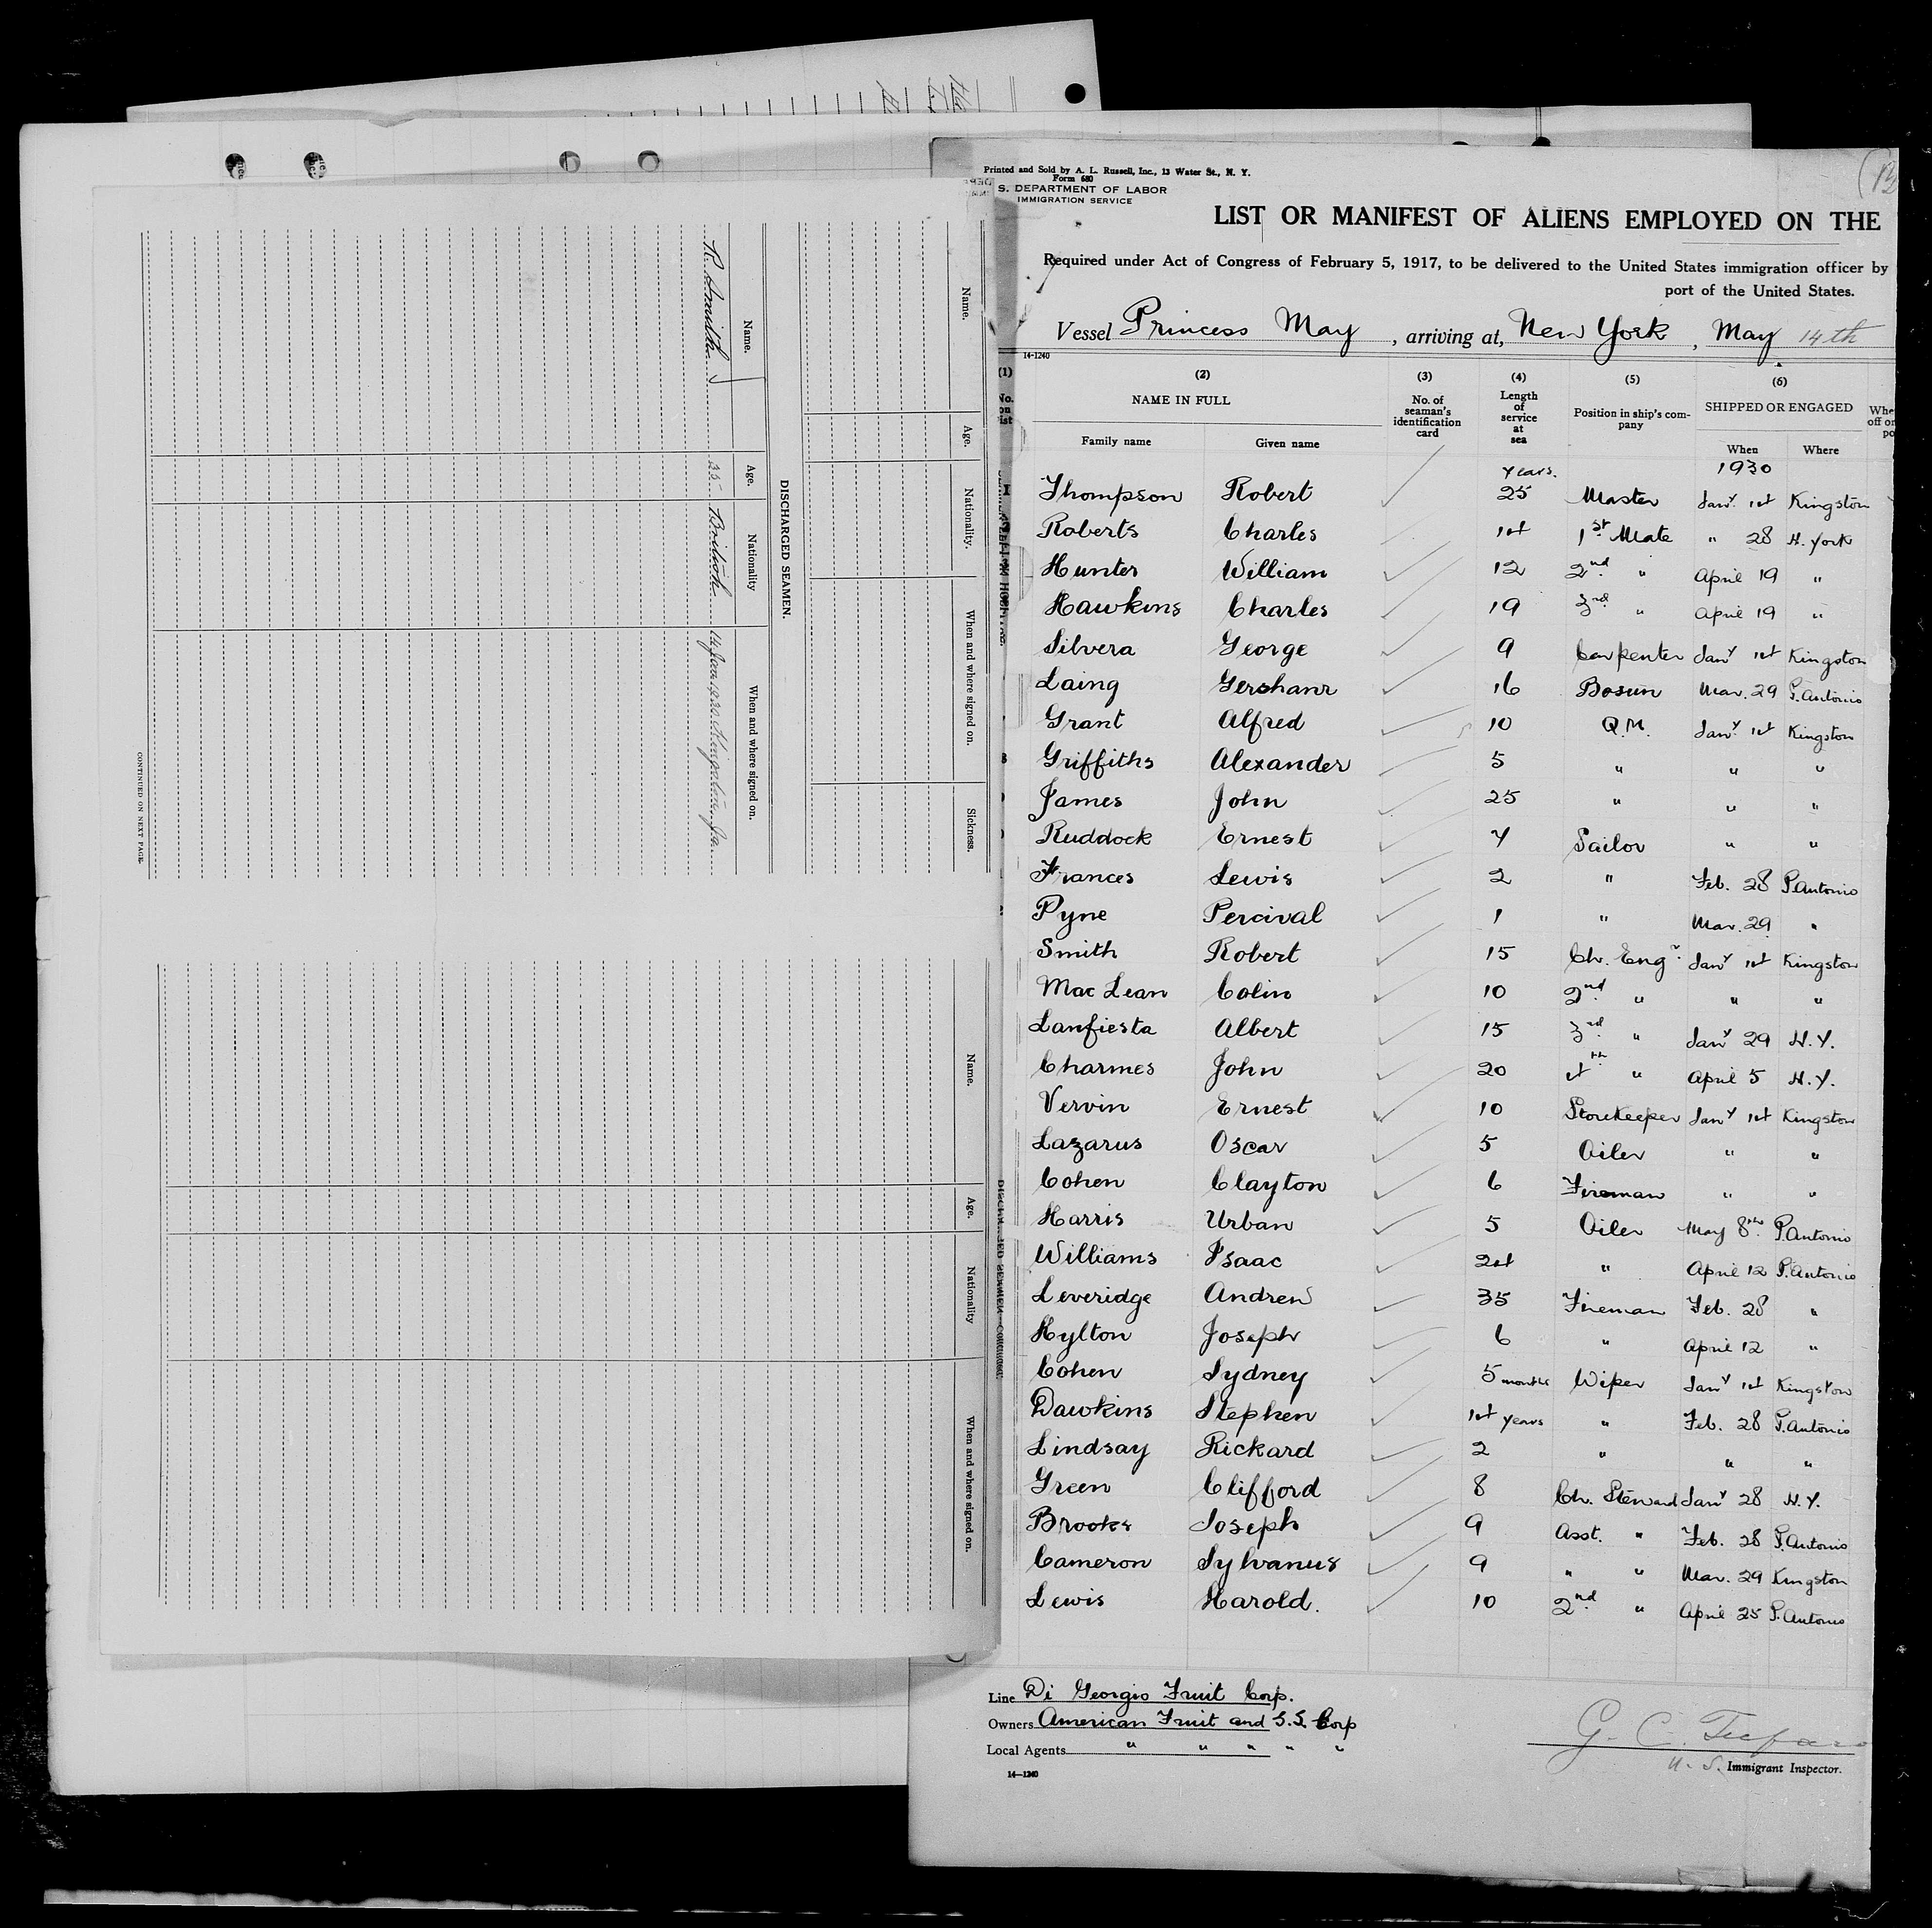 Printed and Sold by A. L. Russell, Inc., 13 Water St., N. Y.
Form 680
S. DEPARTMENT OF LABOR
IMMIGRATION SERVICE
LIST OR MANIFEST OF ALIENS EMPLOYED ON THE
Required under Act of Congress of February 5, 1917, to be delivered to the United States immigration officer by
port of the United States.
Vessel Princess May, arriving at, New York, May 14th
14-1240
(1) (2) (3) (4) (5) (6)
No. on list NAME IN FULL No. of seaman's identification card Length of service at sea Position in ship's company SHIPPED OR ENGAGED
Family name Given name When Where
Years. 1930
Thompson Robert 25 Master Jany. 1st Kingston
Roberts Charles 14 1st Mate " 28 N. York
Hunter William 12 2nd " April 19 "
Hawkins Charles 19 3rd " April 19 "
Silvera George 9 Carpenter Jany 1st Kingston
Laing Gershanr 16 Bosun Mar. 29 P. Antonio
Grant Alfred 10 Q.M. Jany. 1st Kingston
Griffiths Alexander 5 " " "
James John 25 " " "
Ruddock Ernest 7 Sailor " "
Frances Lewis 2 " Feb. 28 P. Antonio
Pyne Percival 1 " Mar. 29 "
Smith Robert 15 Ch. Engr. Jany 1st Kingston
Mac Lean Colin 10 2nd " " "
Lanfiesta Albert 15 3rd " Jany 29 N.Y.
Charmes John 20 4th " April 5 N.Y.
Vervin Ernest 10 Storekeeper Jany 1st Kingston
Lazarus Oscar 5 Oiler " "
Cohen Clayton 6 Fireman " "
Harris Urban 5 Oiler May 8th P. Antonio
Williams Isaac 24 " April 12 P. Antonio
Leveridge Andrew 35 Fireman Feb. 28 "
Hylton Joseph 6 " April 12 "
Cohen Sydney 5 months Wiper Jany 1st Kingston
Dawkins Stephen 14 years " Feb. 28 P. Antonio
Lindsay Rickard 2 " " "
Green Clifford 8 Ch. Steward Jany 28 N.Y.
Brooks Joseph 9 Asst. " Feb. 28 P. Antonio
Cameron Sylvanus 9 " " Mar. 29 Kingston
Lewis Harold. 10 2nd " April 25 P. Antonio
Line Di Georgio Fruit Corp.
Owners American Fruit and S.S. Corp
Local Agents " " " " "
14-1240
G. C.
U. S. Immigrant Inspector.
Name. Age. Nationality. When and where signed on. Sickness.
DISCHARGED SEAMEN.
Name. Age. Nationality When and where signed on.
R. Smith 25 British 14 Jan 1930 Kingston, Ja.
CONTINUED ON NEXT PAGE.
Name. Age. Nationality When and where signed on.